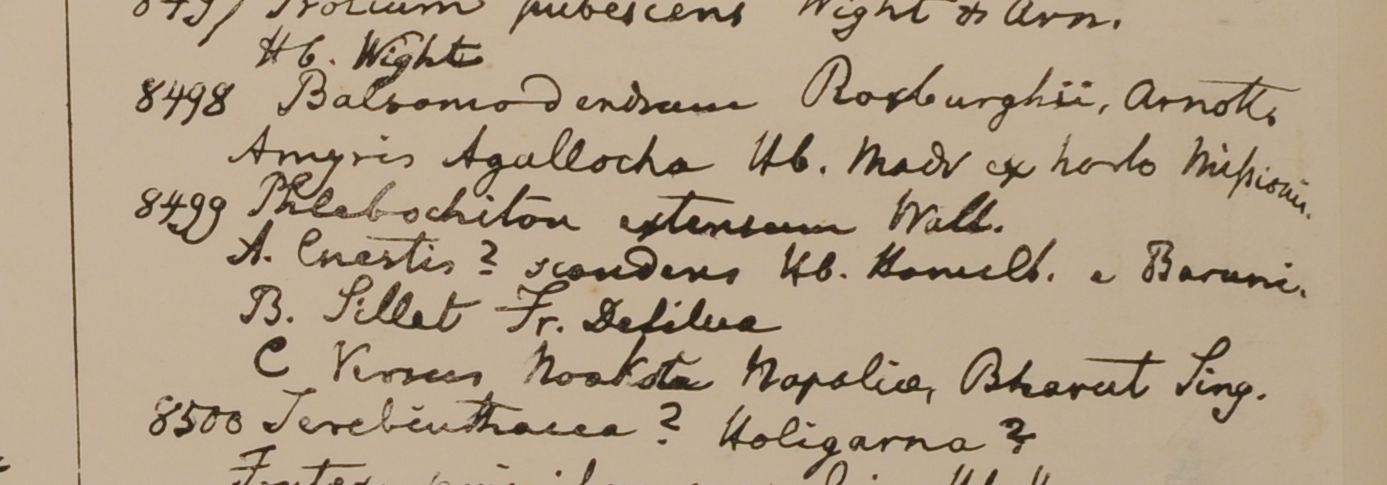 8497 Protium pubescens Wight & Arn.
Hb. Wight
8498 Balsamodendrum Roxburghii, Arnott.
Amyris Agallocha Hb. Madr ex horto Missionis.
8499 Phlebochiton extensum Wall.
A. Cnestis? scandens Hb. Hamilt. e Baruni.
B. Sillet Fr. DeSilva
C Versus Noakota Napaliæ, Bharut Sing.
8500 Terebinthacea? Holigarna?
Frutex